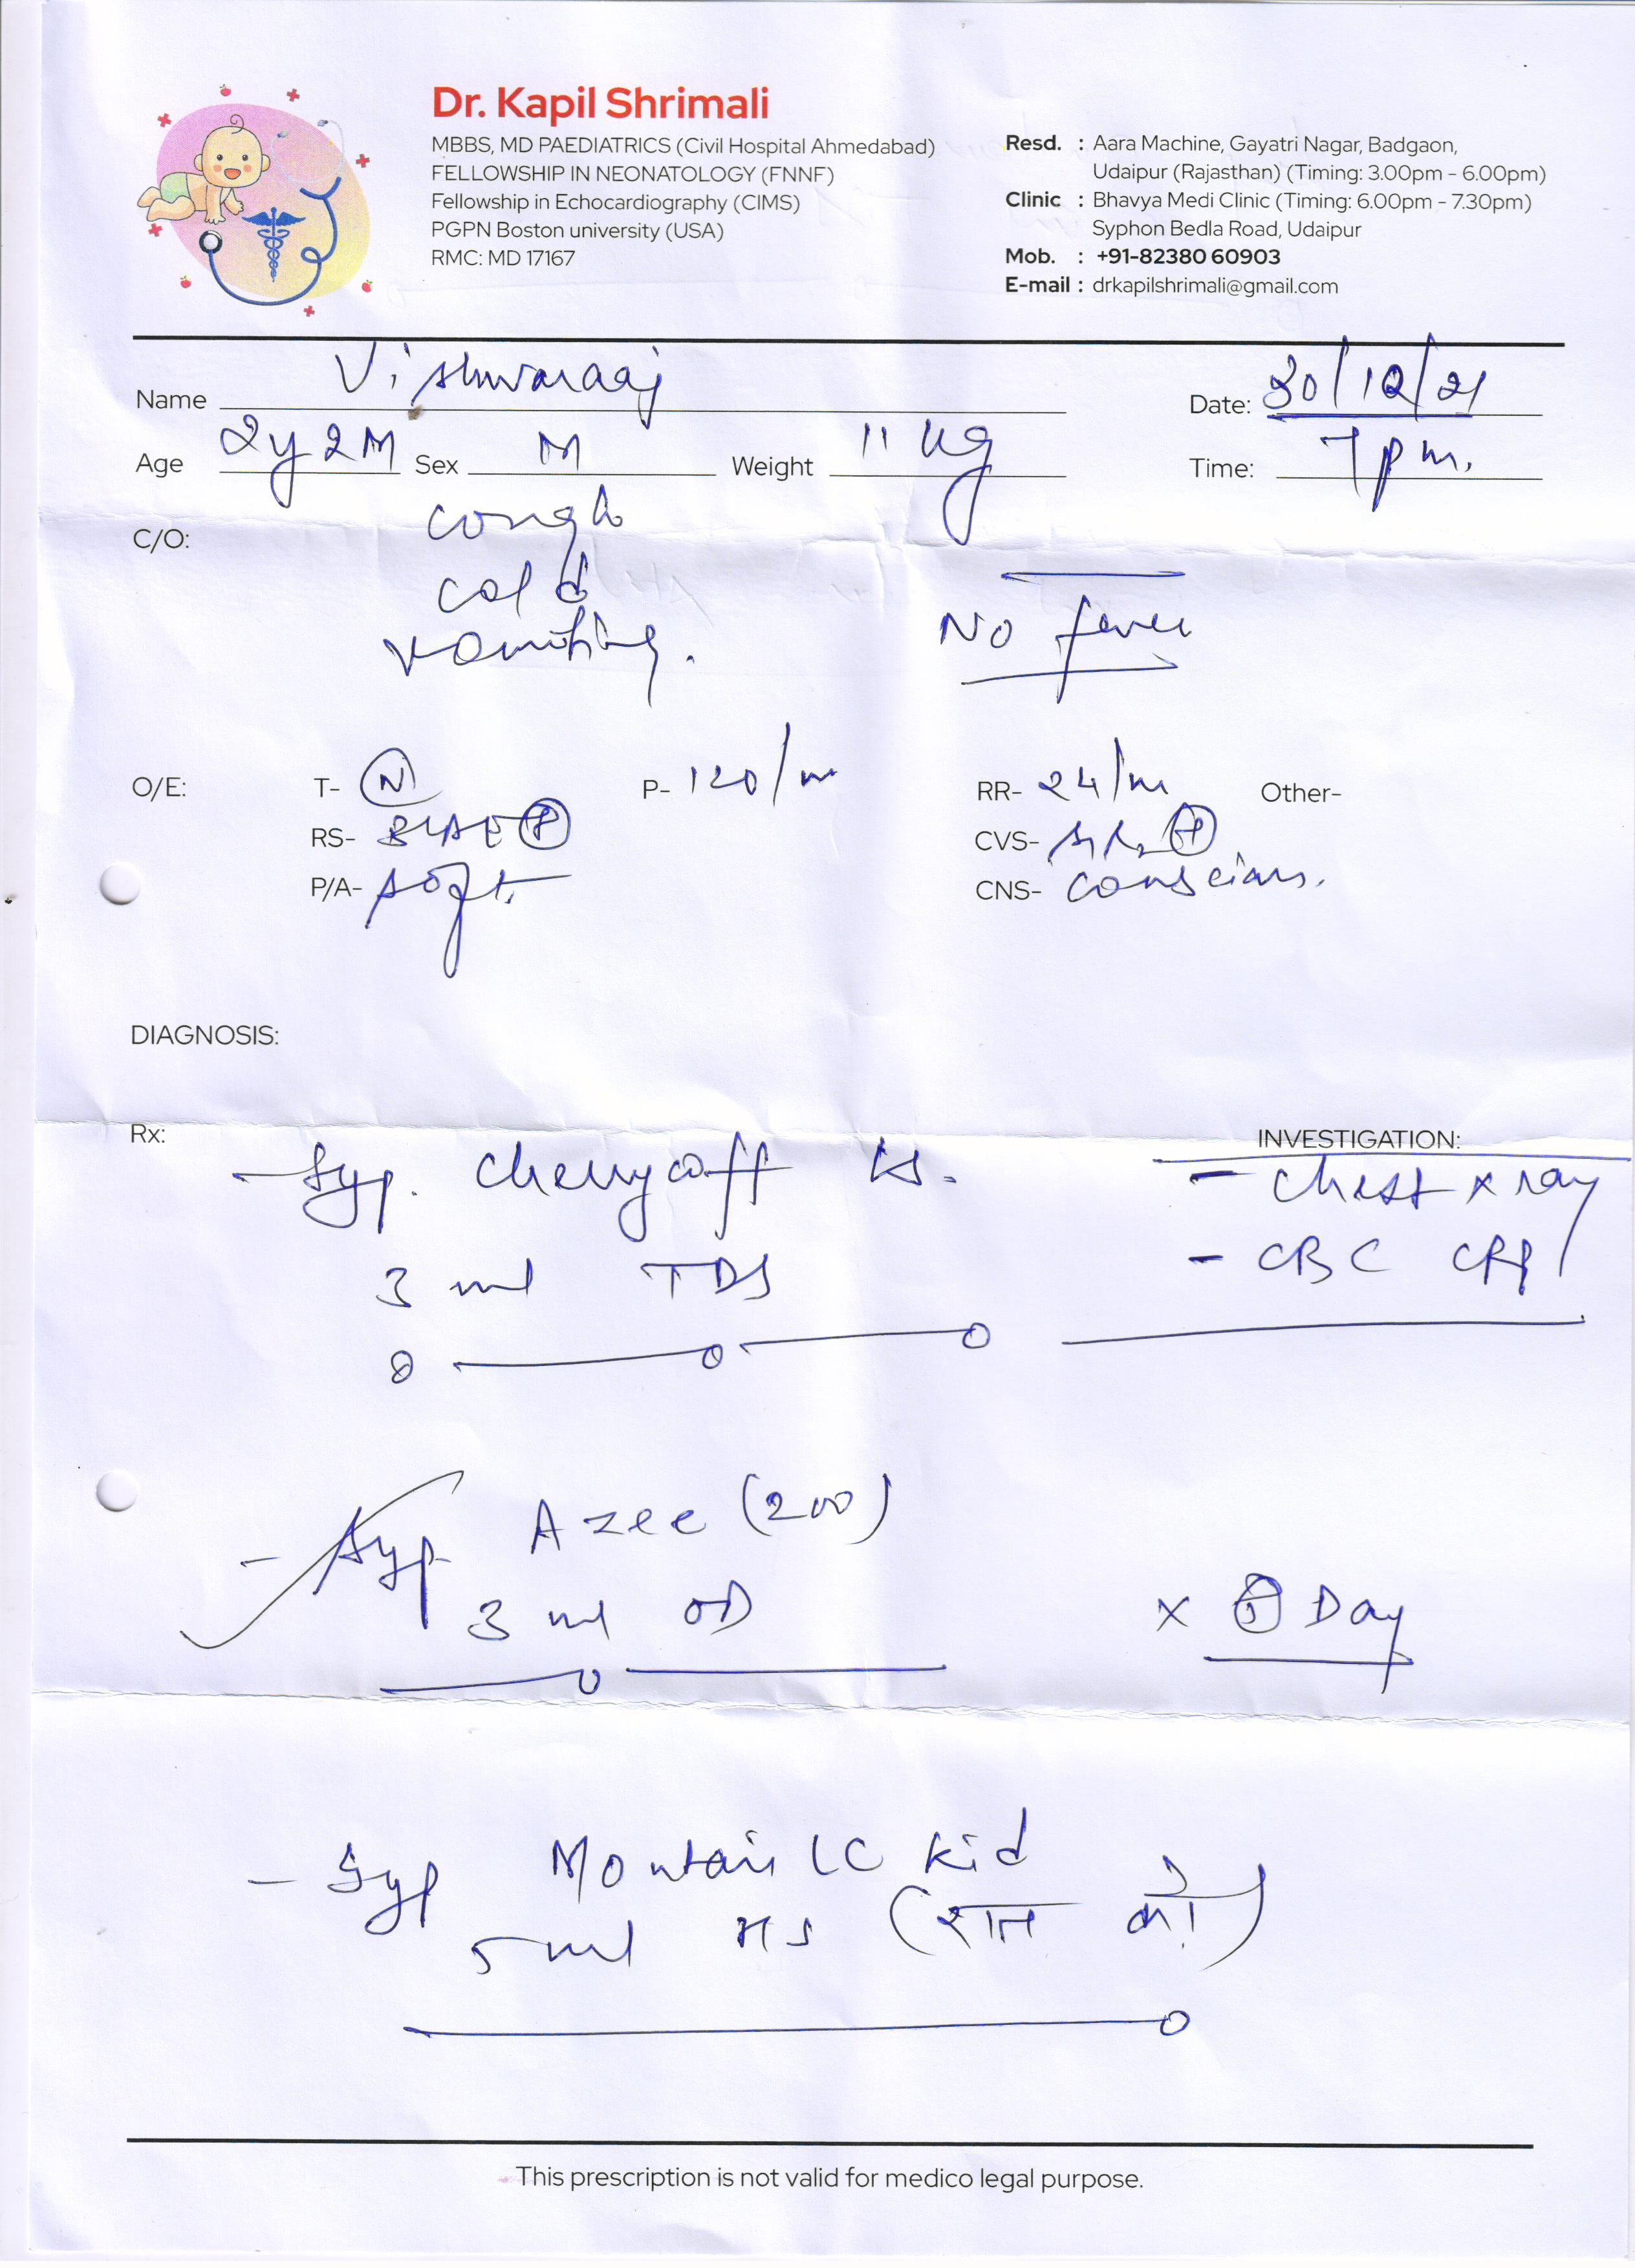 Dr. Kapil Shrimali
MBBS, MD PAEDIATRICS (Civil Hospital Ahmedabad)
FELLOWSHIP IN NEONATOLOGY (FNNF)
Fellowship in Echocardiography (CIMS)
PGPN Boston university (USA)
RMC: MD 17167
Resd. : Aara Machine, Gayatri Nagar, Badgaon,
Udaipur (Rajasthan) (Timing: 3.00pm - 6.00pm)
Clinic : Bhavya Medi Clinic (Timing: 6.00pm - 7.30pm)
Syphon Bedla Road, Udaipur
Mob. : +91-82380 60903
E-mail : drkapilshrimali@gmail.com
Name Vishwaraaj Date: 30/12/21
Age 2y 2M Sex M Weight 11 kg Time: 7 pm.
C/O: cough
cold
vomiting.
No fever
O/E: T- N P- 120/m RR- 24/m Other-
RS- BLAE + CVS- +
P/A- soft. CNS- conscious.
DIAGNOSIS:
Rx:
- Syp. Cherycoff LS.
3 ml TDS
INVESTIGATION:
- Chest x ray
- CBC CRP
- Syp Azee (200)
3 ml OD x Day
- Syp Montair LC kid
5 ml HS (रात को)
This prescription is not valid for medico legal purpose.